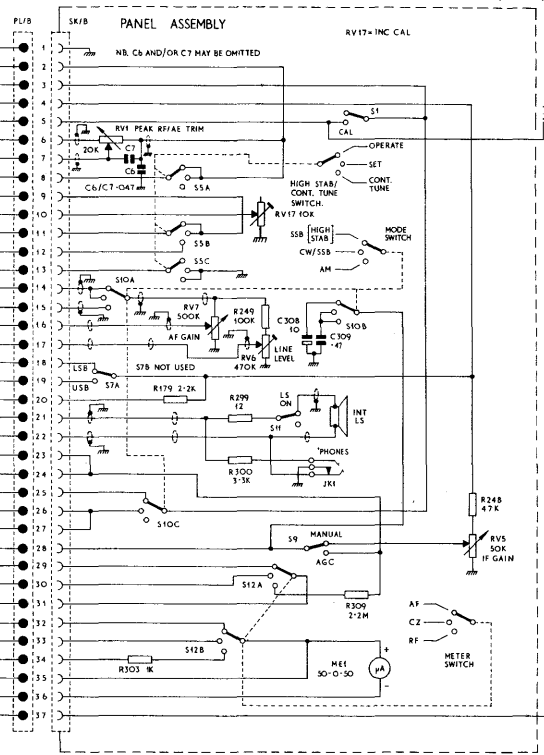 PL/B
SK/B
PANEL ASSEMBLY
RV17 = INC CAL
NB. C6 AND/OR C7 MAY BE OMITTED
1
2
3
4
5
6
7
8
9
10
11
12
13
14
15
16
17
18
19
20
21
22
23
24
25
26
27
28
29
30
31
32
33
34
35
36
37
S1
CAL
RV1 PEAK RF/AE TRIM
20K
C7
C6
C6/C7 ·047
S5A
OPERATE
SET
CONT. TUNE
HIGH STAB/
CONT. TUNE
SWITCH.
RV17 10K
S5B
S5C
SSB [HIGH STAB]
CW/SSB
AM
MODE
SWITCH
S10A
RV7
500K
AF GAIN
R249
100K
LINE
LEVEL
RV6
470K
C308
10
C309
·47
S10B
LSB
USB
S7A
S7B NOT USED
R179 2·2K
R299
12
LS
ON
S11
INT
LS
R300
3·3K
'PHONES
JK1
S10C
R248
47K
S9
MANUAL
AGC
RV5
50K
IF GAIN
S12A
R309
2·2M
S12B
R303 1K
ME1
50-0-50
+
µA
−
AF
CZ
RF
METER
SWITCH